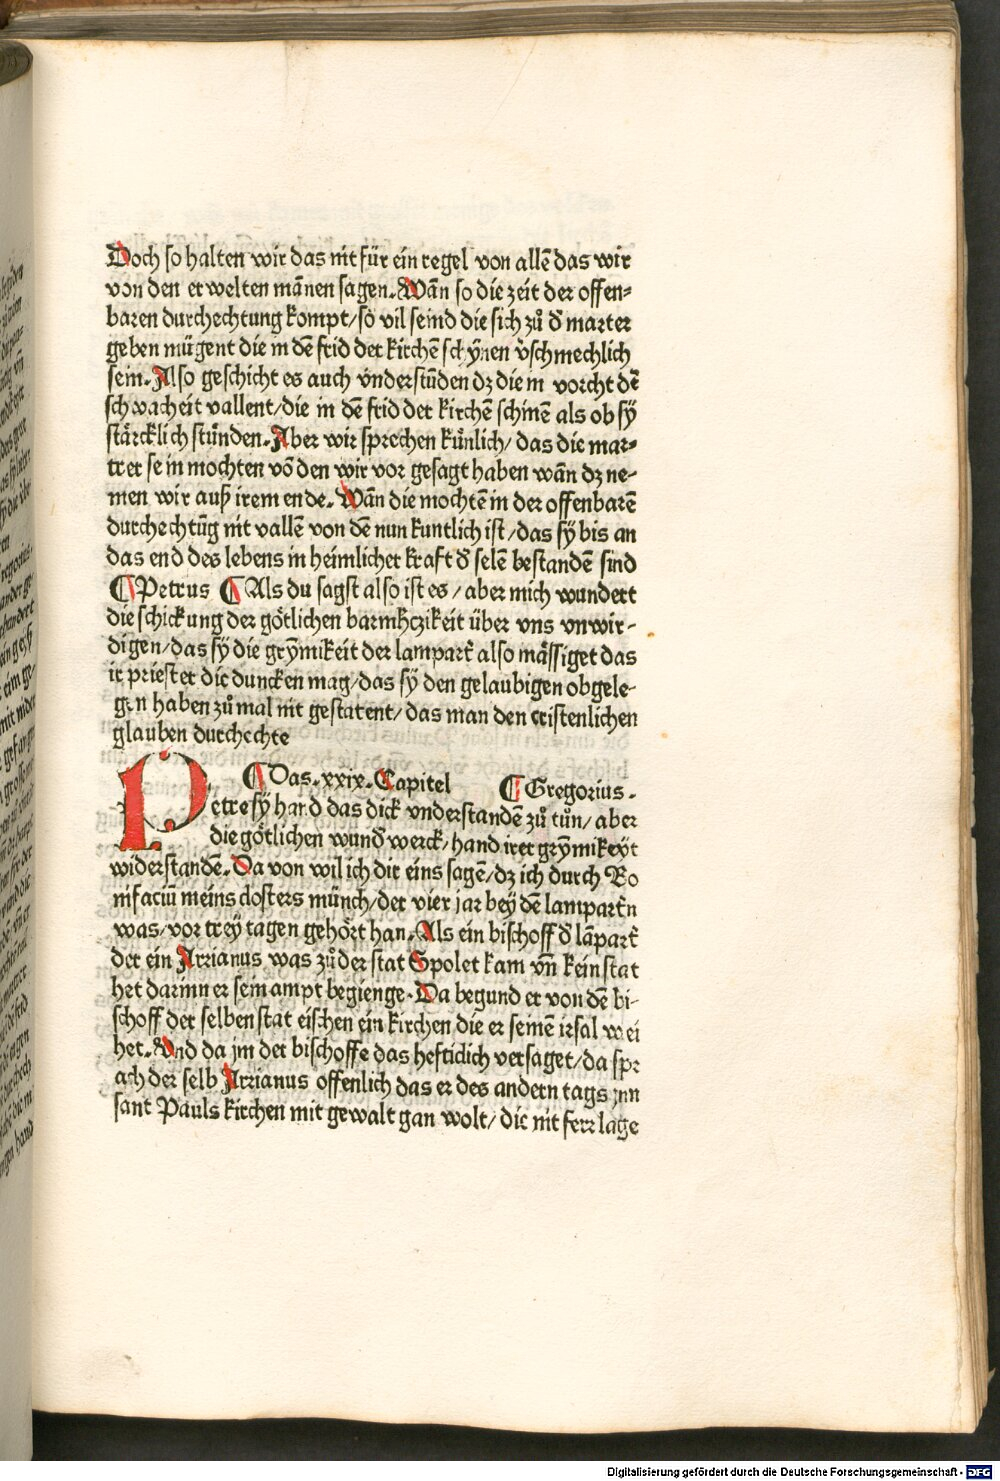 Doch so halten wir das nit für ein regel von allē das wir
von den erwelten mānen sagen. Wān so die zeit der offen-
baren durchechtung kompt/so vil seind die sich zů d̄ marter
geben mügent die in dē frid der kirchē schÿnen v̈schmechlich
sein. Also geschicht es auch v́nderstūden dz die in vorcht dē
schwacheit vallent/die in dē frid der kirchē schinē als ob sÿ
stärcklich stůnden. Aber wir sprechen kůnlich/das die mar-
trer sein mochten vō den wir vor gesagt haben wān dz ne-
men wir auß irem ende. Wān die mochtē in der offenbarē
durchechtūg nit vallē von dē nun kuntlich ist/das sÿ bis an
das end des lebens in heimlicher kraft d̄ selē bestandē sind
¶Petrus ¶Als du sagst also ist es/aber mich wundert
die schickung der götlichen barmhczikeit über vns vnwir-
digen/das sÿ die grÿmikeit der lampart̄ also mässiget das
ir priester die duncken mag/das sÿ den gelaubigen obgele-
gen haben zůmal nit gestatent/das man den cristenlichen
glauben durchechte
¶Das.xxix.Capitel ¶Gregorius.
Petre sÿ hand das dick vnderstandē zů tůn/aber
die götlichen wund̄werck/hand irer grÿmikeÿt
widerstandē. Da von wil ich dir eins sagē/dz ich durch Bo
nifaciū meins closters münch/der vier jar beÿ dē lampart̄n
was/vor treÿ tagen gehört han. Als ein bischoff d̄ lāpart̄
der ein Arrianus was zů der stat Spolet kam vn̄ kein stat
het darinn er sein ampt begienge. Da begund er von dē bi-
schoff der selben stat eischen ein kirchen die er seinē irsal wei
het. Vnd da jm der bischoffe das heftiklich versaget/da spr
ach der selb Arrianus offenlich das er des andern tags jnn
sant Pauls kirchen mit gewalt gan wolt/die nit ferr lage
Digitalisierung gefördert durch die Deutsche Forschungsgemeinschaft - DFG